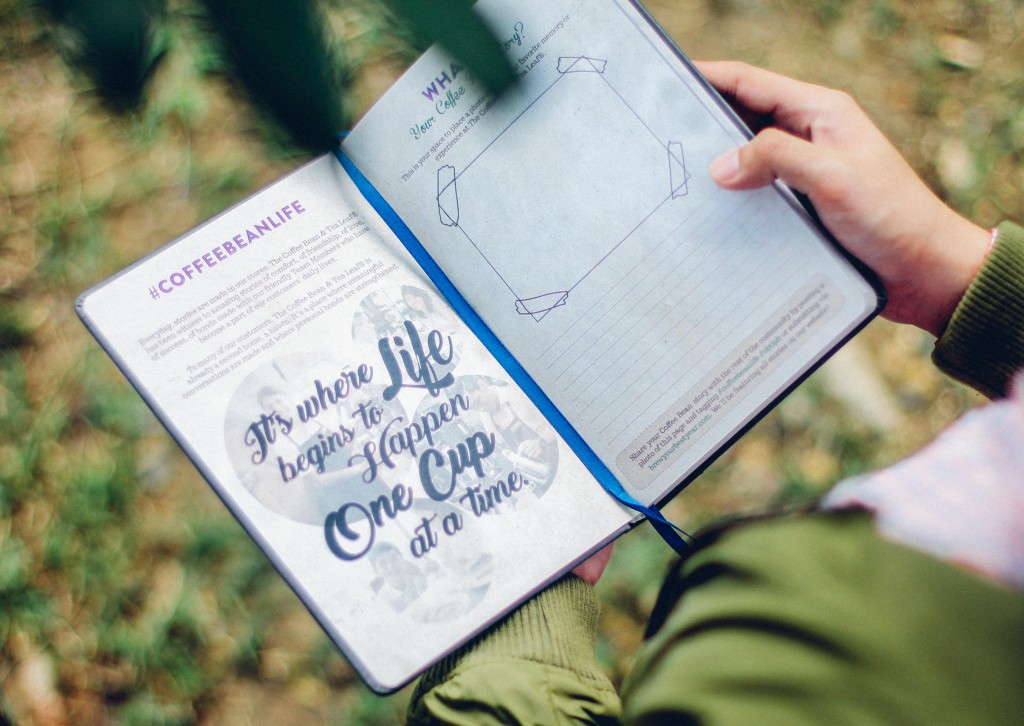 #COFFEEBEANLIFE
Everyday, stories are made in our stores. The Coffee Bean & Tea Leaf®
has been witness to amazing stories of comfort, of friendship, of love,
of success, of bonds made with our friendly Team Members who have
become a part of our customers' daily lives.
To many of our customers, The Coffee Bean & Tea Leaf® is
already a second home, a haven; it's a place where meaningful
conversations are made and where personal bonds are strengthened.
It's where Life
begins to
Happen
One Cup
at a time.
Your Coffee
This is your space to place a favorite memory or
experience at The
Share your Coffee Bean story with the rest of the community by posting a
photo of this page and tagging or submitting via
brewyourbestyear.com. We'll be featuring all stories on our website!